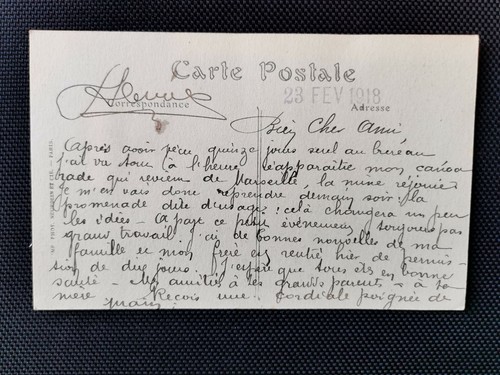 Carte Postale
23 FEV 1918
Correspondance
Adresse
Bien Cher Ami
Après avoir passé quinze jours seul au bureau
j'ai vu tout à l'heure réapparaître mon cama
rade qui revient de Marseille, la mine réjouie
je m'en vais donc reprendre demain soir la
promenade dite d'usage! celà changera un peu
les idées - A part ce petit évènement toujours pas
grand travail. J'ai de bonnes nouvelles de ma
famille et mon frère est rentré hier de permis-
sion de dix jours. J'espère que tous êtes en bonne
santé - Mes amitiés à tes grands parents & à ta
mère Reçois une cordiale poignée de
main